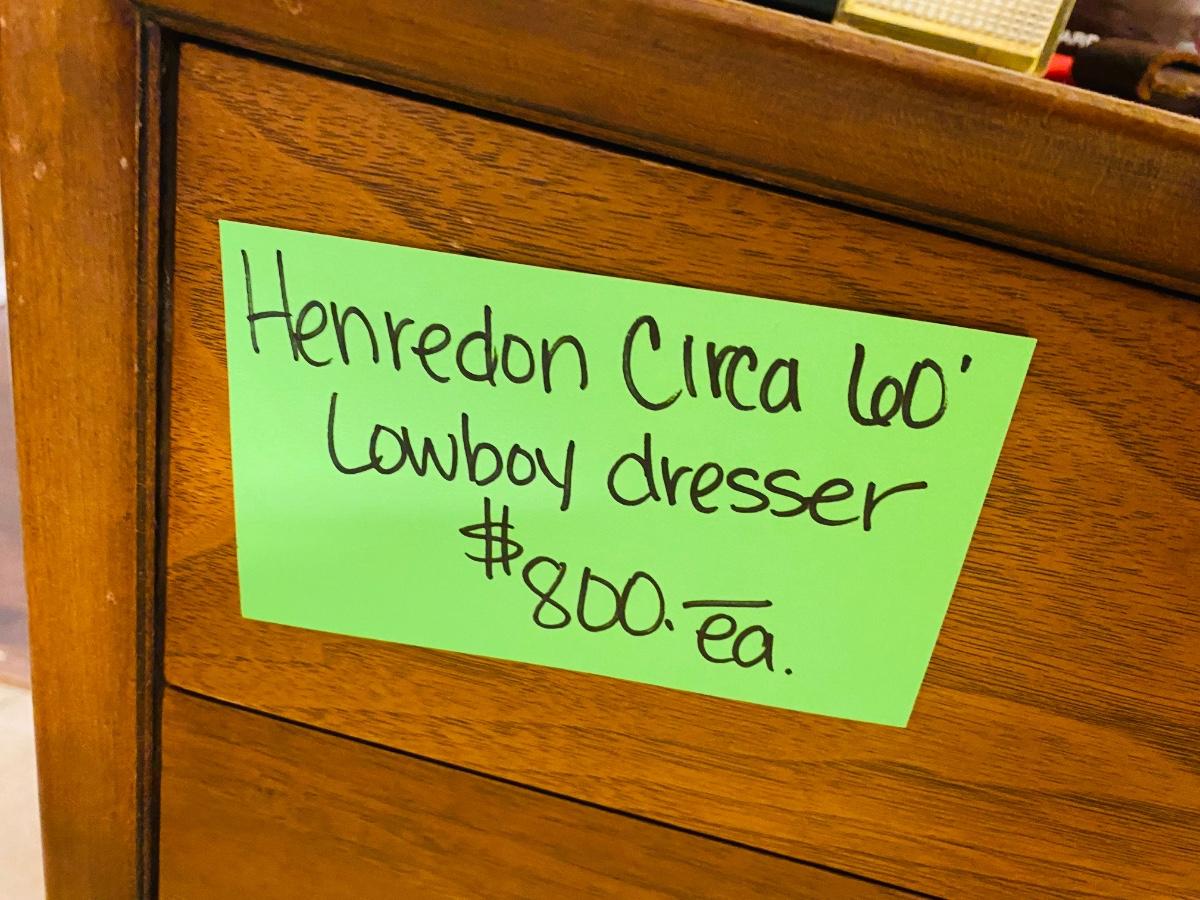 Henredon Circa 60'
Lowboy dresser
$800. ea.